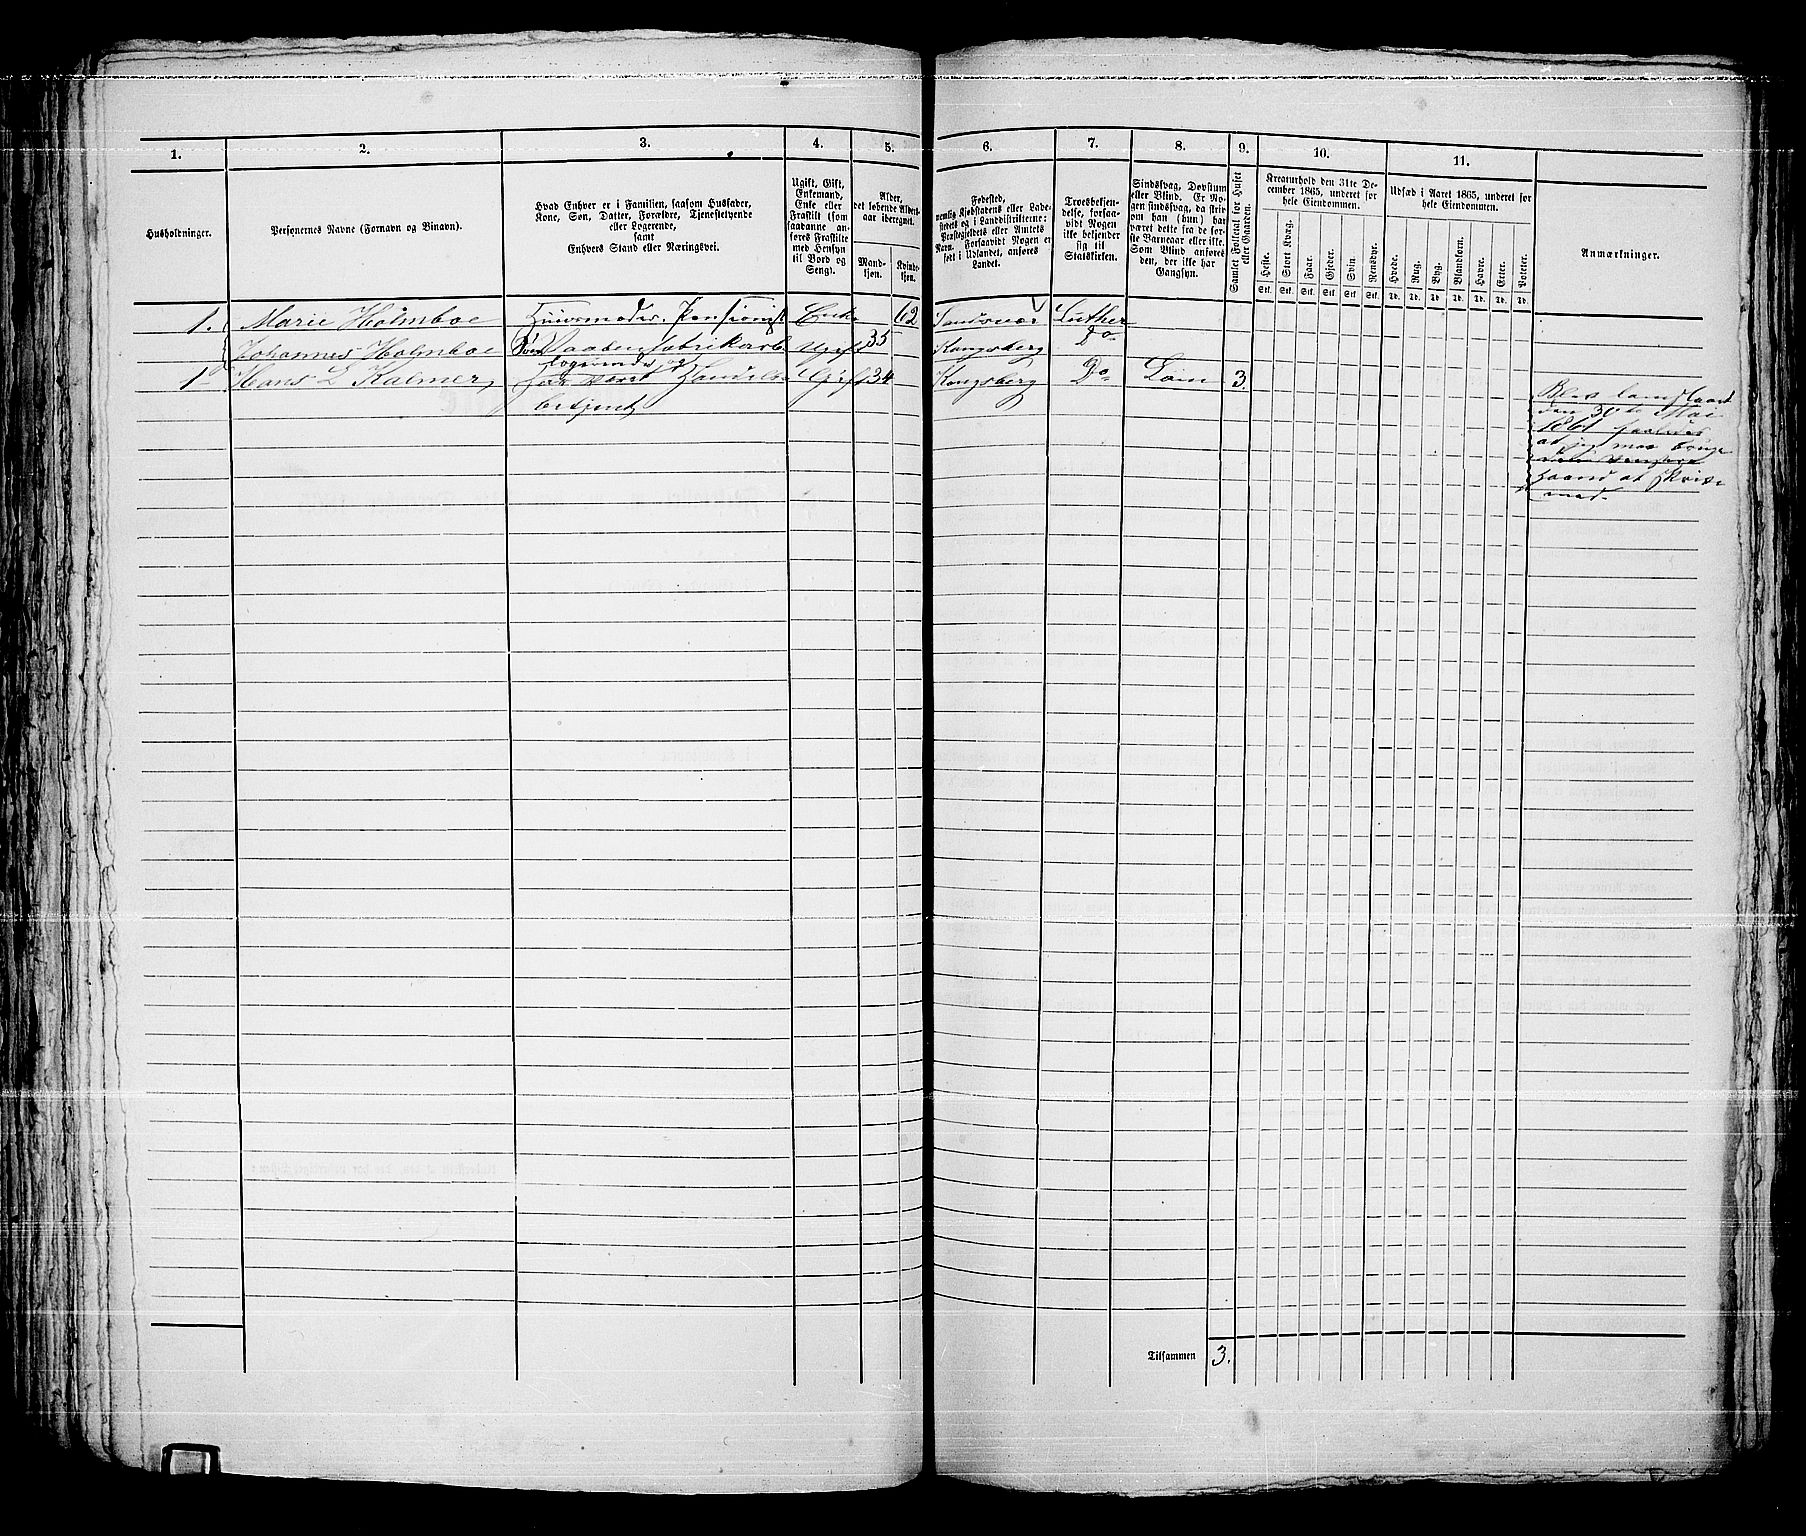 1.
2.
3.
4.
5.
6.
7.
8.
9.
10.
11.
Husholdninger.
Personernes Navne (Fornavn og Binavn).
Hvad Enhver er i Familien, saasom Husfader,
Kone, Søn, Datter, Forældre, Tjenestetyende
eller Logerende,
samt
Enhvers Stand eller Næringsvei.
Ugift, Gift,
Enkemand,
Enke eller
Fraskilt (som
saadanne an-
føres Fraskilte
med Hensyn
til Bord og
Seng).
Alder,
det løbende Alders-
aar iberegnet.
Mand-
kjøn.
Kvinde-
kjøn.
Fødested,
nemlig Kjøbstadens eller Lade-
stedets og i Landdistrikterne:
Præstegjeldets eller Amtets
Navn. Forsaavidt Nogen er
født i Udlandet, anføres
Landet.
Troesbekjen-
delse, forsaa-
vidt Nogen
ikke bekjender
sig til
Statskirken.
Sindssvag, Døvstum
eller Blind. Er No-
gen sindssvag, da skriv
om han (hun) har
været dette fra de før-
ste Barneaar eller ikke.
Som Blind anføres
den, der ikke har
Gangsyn.
Samlet Folketal for Huset
eller Gaarden.
Kreaturhold den 31te De-
cember 1865, underet for
hele Eiendommen.
Heste.
Stort Kvæg.
Faar.
Gjeder.
Svin.
Rensdyr.
Stk. Stk. Stk. Stk. Stk. Stk.
Udsæd i Aaret 1865, underet for
hele Eiendommen.
Hvede.
Rug.
Byg.
Blandkorn.
Havre.
Erter.
Poteter.
Td. Td. Td. Td. Td. Td. Td.
Anmærkninger.
1. Marie Holmboe Huusmoder. Pensionist Enke 62 Sandsvær Luther
Johannes Holmboe Søn Vaabenfabrikarb. Ugift 35 Kongsberg Do
1 Hans L Kalmer, Logerende og Handels Gift 34 Kongsberg Do Lam 3.
betjent
Blev lam
den 30te Mai
186 saaledes
at jeg maa bruge
Haand at skrive
med.
Tilsammen 3.